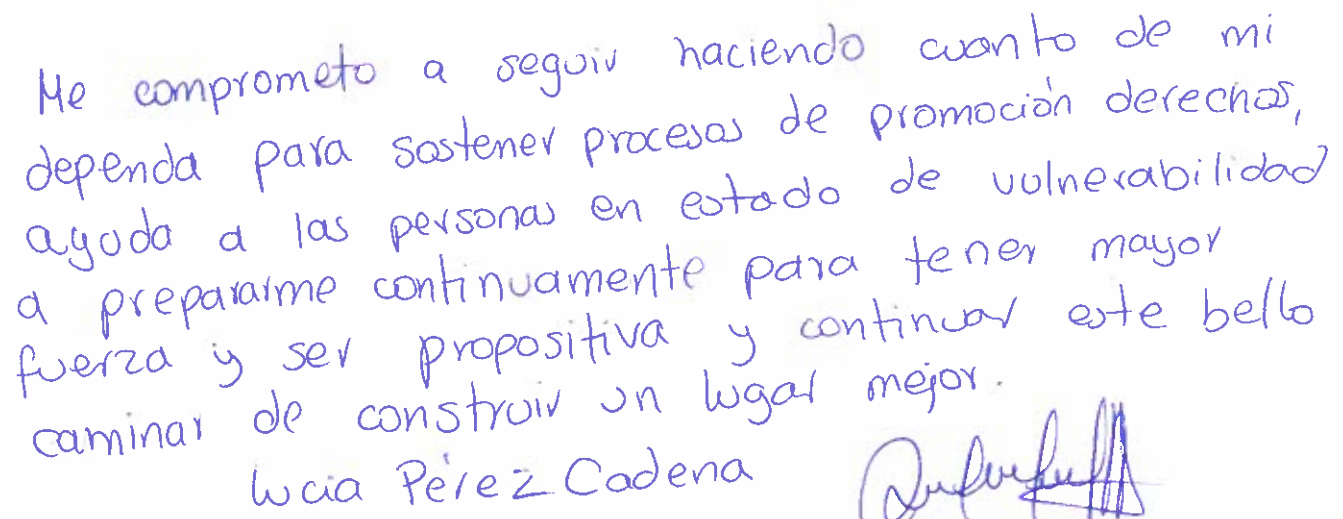 Me comprometo a seguir haciendo cuanto de mi
dependa para sostener procesos de promoción derechos,
ayuda a las personas en estado de vulnerabilidad
a prepararme continuamente para tener mayor
fuerza y ser propositiva y continuar este bello
caminar de construir un lugar mejor.
Lucia Pérez Cadena